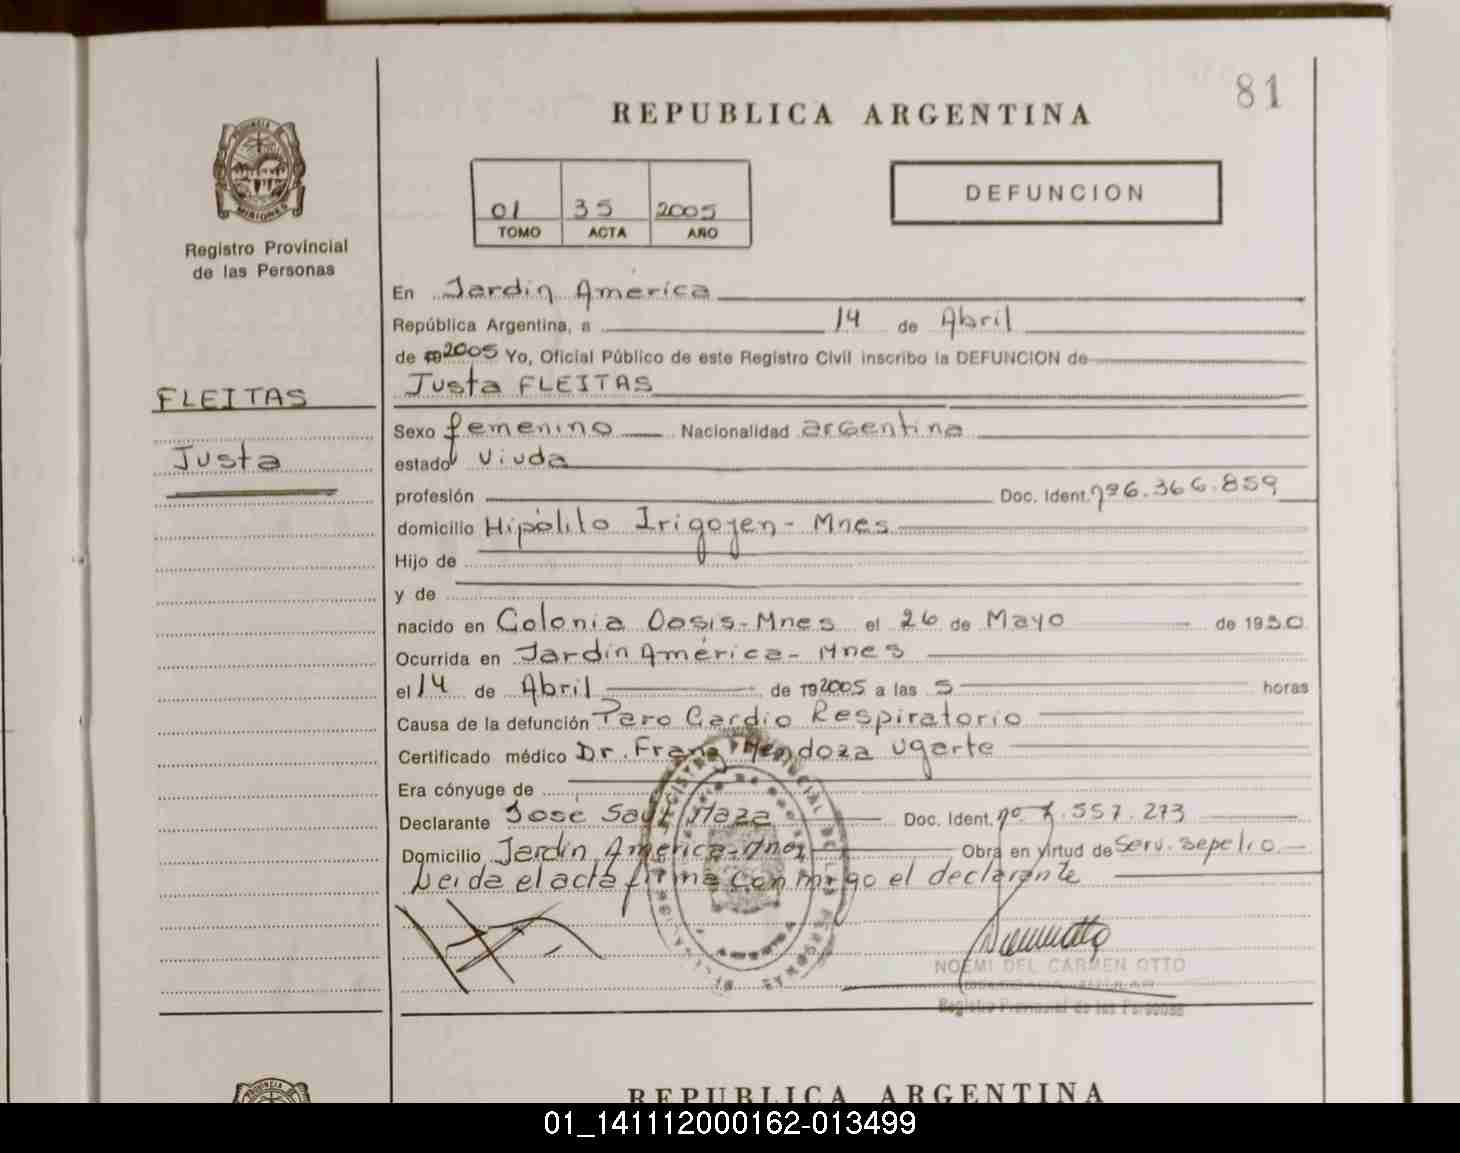 81
REPUBLICA ARGENTINA
PROVINCIA DE
MISIONES
Registro Provincial
de las Personas
01 35 2005
TOMO ACTA AÑO
DEFUNCION
En Jardin América
República Argentina, a 14 de Abril
de 2005 Yo, Oficial Público de este Registro Civil inscribo la DEFUNCION de
FLEITAS
Justa
Justa FLEITAS
Sexo femenino Nacionalidad argentina
estado Viuda
profesión Doc. Ident. nº6.366.859
domicilio Hipólito Irigoyen - Mnes
Hijo de
y de
nacido en Colonia Oasis - Mnes el 26 de Mayo de 1930
Ocurrida en Jardin América - Mnes
el 14 de Abril de 192005 a las 5 horas
Causa de la defunción Paro Cardio Respiratorio
Certificado médico Dr. Franz Mendoza Ugarte
Era cónyuge de
Declarante José Maza Doc. Ident. nº 7.557.273
Domicilio Jardin América - Mnes Obra en virtud de Serv. sepelio
Leida el acta firma conmigo el declarante
NOEMI DEL CARMEN OTTO
Registro Provincial de las Personas
REPUBLICA ARGENTINA
01_141112000162-013499